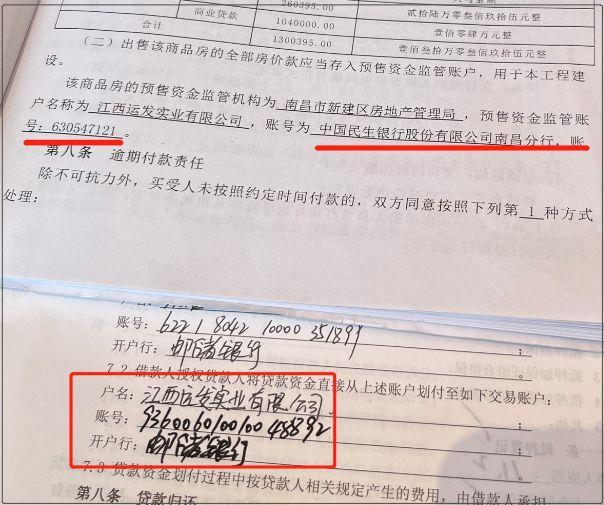 260395.00
商业贷款 1040000.00 贰拾陆万零叁佰玖拾伍元整
合计 1300395.00 壹佰零肆万元整
壹佰叁拾万零叁佰玖拾伍元整
(二)出售该商品房的全部房价款应当存入预售资金监管账户,用于本工程建
设。
该商品房的预售资金监管机构为 南昌市新建区房地产管理局 ,预售资金监管账
户名称为 江西运发实业有限公司 ,账号为 中国民生银行股份有限公司南昌分行,账
号:630547121 。
第八条 逾期付款责任
除不可抗力外,买受人未按照约定时间付款的,双方同意按照下列第 1 种方式
处理:
账号:6221 8042 10000 351899
开户行:邮储银行;
7.2 借款人授权贷款人将贷款资金直接从上述账户划付至如下交易账户:
户名:江西运发实业有限公司;
账号:936006010010048892;
开户行:邮储银行。
7.3 贷款资金划付过程中按贷款人相关规定产生的费用,由借款人承担
第八条 贷款归还